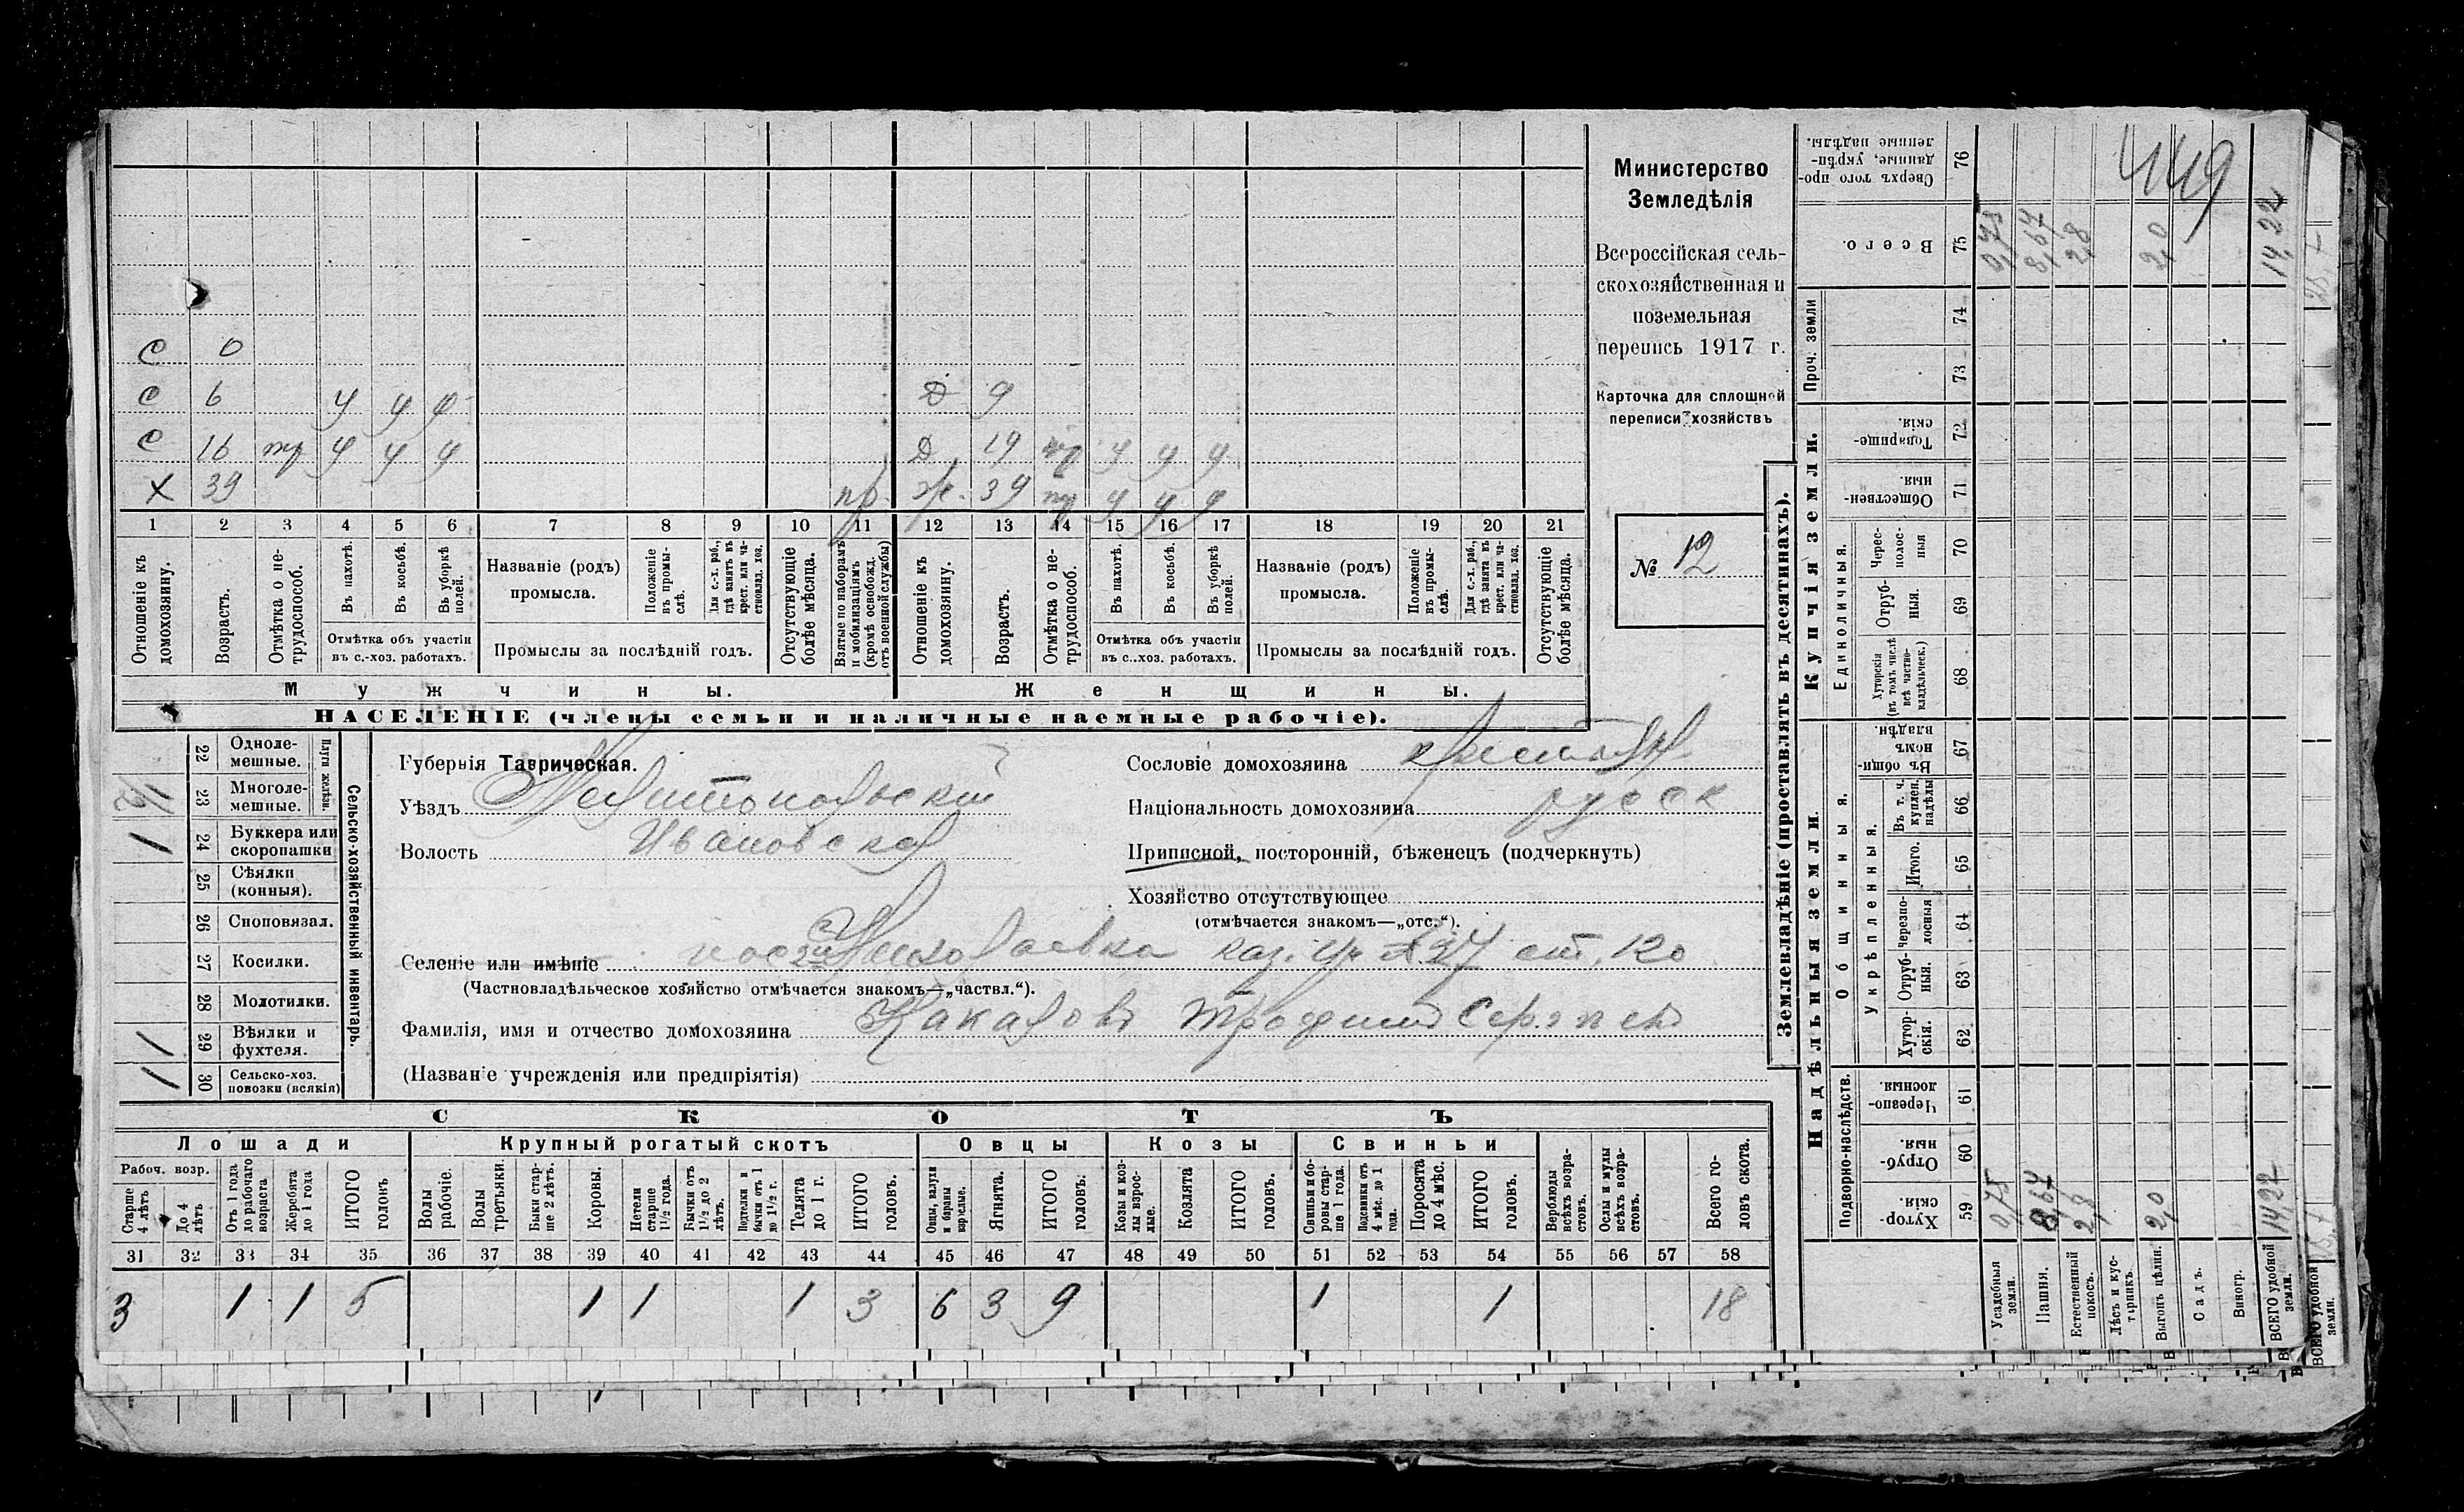 449
Министерство
Земледѣлія
Всероссійская сель-
скохозяйственная и
поземельная
перепись 1917 г.
Карточка для сплошной
переписи хозяйствъ
№ 12
С 0
С 6 у у у Д 9
С 16 у у у Д 19 у у у
Х 39 пр. ж. 39 у у у
1 2 3 4 5 6 7 8 9 10 11 12 13 14 15 16 17 18 19 20 21
Отношеніе къ домохозяину.
Возрастъ.
Отмѣтка о не-трудоспособ.
Въ пахотѣ.
Въ косьбѣ.
Въ уборкѣ полей.
Отмѣтка объ участіи
въ с.-хоз. работахъ.
Названіе (родъ)
промысла.
Положеніе въ промы-слѣ.
Для с.-х. раб., гдѣ занятъ въ крест. или ча-стновлад. хоз.
Промыслы за послѣдній годъ.
Отсутствующіе болѣе мѣсяца.
Взятые по наборамъ и мобилизаціямъ (кромѣ освобожд. отъ военной службы)
Отношеніе къ домохозяину.
Возрастъ.
Отмѣтка о не-трудоспособ.
Въ пахотѣ.
Въ косьбѣ.
Въ уборкѣ полей.
Отмѣтка объ участіи
въ с..хоз. работахъ.
Названіе (родъ)
промысла.
Положеніе въ промы-слѣ.
Для с.-х. раб., гдѣ занята въ крест. или ча-стновлад. хоз.
Промыслы за послѣдній годъ.
Отсутствующіе болѣе мѣсяца.
Мужчины.
Женщины.
НАСЕЛЕНІЕ (члены семьи и наличные наемные рабочіе).
Сельско-хозяйственный инвентарь.
Плуги желѣзн.
22 Одноле-мешные.
1/2 23 Многоле-мешные.
1 24 Буккера или скоропашки
25 Сѣялки (конныя).
26 Сноповязал.
27 Косилки.
28 Молотилки.
29 Вѣялки и фухтеля.
30 Сельско-хоз. повозки (всякія)
Губернія Таврическая.
Уѣздъ Мелитопольскій
Волость Ивановская
Сословіе домохозяина
Національность домохозяина русск
Приписной, посторонній, бѣженецъ (подчеркнуть)
Хозяйство отсутствующее
(отмѣчается знакомъ—„отс.“).
Селеніе или имѣніе
(Частновладѣльческое хозяйство отмѣчается знакомъ—„частвл.“).
Фамилія, имя и отчество домохозяина Какаловъ Трофимъ
(Названіе учрежденія или предпріятія)
СКОТЪ
Лошади
Крупный рогатый скотъ
Овцы
Козы
Свиньи
Рабоч. возр.
Старше 4 лѣтъ
До 4 лѣтъ
Отъ 1 года до рабочаго возраста
Жеребята до 1 года
ИТОГО головъ
Волы рабочіе.
Волы третьяки.
Быки стар-ше 2 лѣтъ.
Коровы.
Нетели старше 1 1/2 года.
Бычки отъ 1 1/2 до 2 лѣтъ.
Подтелки и бычки отъ 1 до 1 1/2 г.
Телята до 1 г.
ИТОГО головъ.
Овцы, валухи и бараны взрослые.
Ягнята.
ИТОГО головъ.
Козы и коз-лы взрос-лые.
Козлята
ИТОГО головъ.
Свиньи и бо-ровы стар-ше 1 года.
Подсвинки отъ 4 мѣс. до 1 года.
Поросята до 4 мѣс.
ИТОГО головъ.
Верблюды всѣхъ возра-стовъ.
Ослы и мулы всѣхъ возра-стовъ.
Всего го-ловъ скота.
31 32 33 34 35 36 37 38 39 40 41 42 43 44 45 46 47 48 49 50 51 52 53 54 55 56 57 58
3 1 1 5 1 1 1 3 6 3 9 1 1 18
Землевладѣніе (проставлять въ десятинахъ).
Надѣльныя земли.
Купчія земли.
Проч. земли
Подворно-наслѣдств.
Общинныя.
Укрѣпленныя.
Единоличныя.
Сверхъ того про-данные, укрѣп-ленные надѣлы. 76
Всего. 75
74
73
Товарище-скія. 72
Обществен-ныя. 71
Черес-полос-ныя 70
Отруб-ныя. 69
Хуторскія (въ томъ числѣ всѣ частно-владѣльческ.) 68
Въ общин-номъ владѣн. 67
Въ т. ч. куплен. надѣлы 66
Итого. 65
Черезпо-лосныя 64
Отруб-ныя. 63
Хутор-скія. 62
Черезпо-лосныя 61
Отруб-ныя. 60
Хутор-скія. 59
Усадебныя земли. 0,75 0,75
Пашня. 8,67 8,67
Естественный покосъ. 2,8 2,8
Лѣсъ и кус-тарникъ.
Выгонъ цѣлин. 2,0 2,0
Садъ.
Виногр.
ВСЕГО удобной земли. 14,22 14,22
ВСЕГО удобной земли.